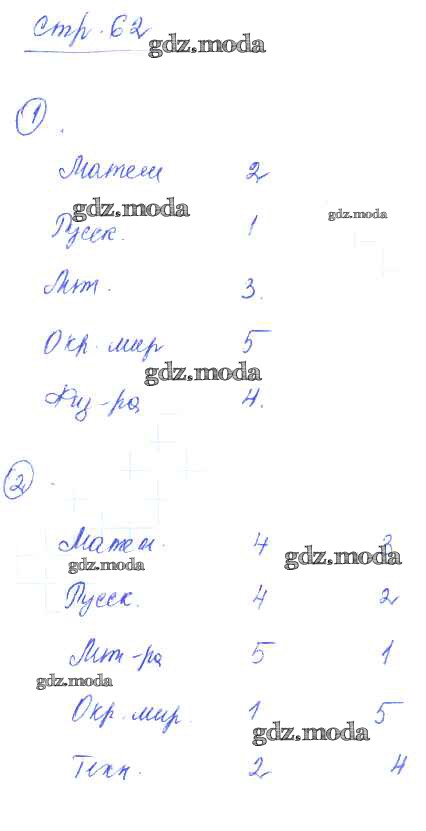 стр. 62
gdz.moda
1.
Матем 2
gdz.moda
gdz.moda
Русск. 1
Лит. 3.
Окр. мир 5
gdz.moda
Физ-ра 4.
2.
Матем. 4 3
gdz.moda
gdz.moda
Русск. 4 2
Лит-ра 5 1
gdz.moda
Окр. мир. 1 5
gdz.moda
Техн. 2 4